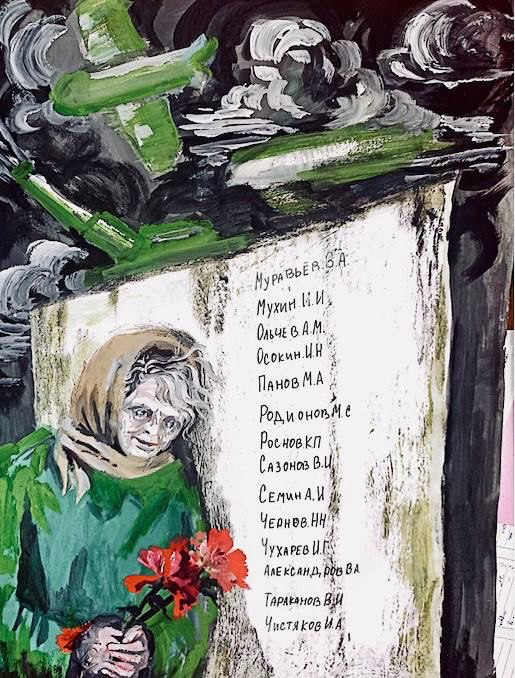 Муравьёв.З.А
Мухин И.И
Ольчев А.М.
Осокин.И.Н
Панов М.А
Родионов М.С
Роснов К П
Сазонов В.И
Семин А.И
Чернов.НН
Чухарев И.Г
Александров В А
Тараканов В.И
Чистяков И.А